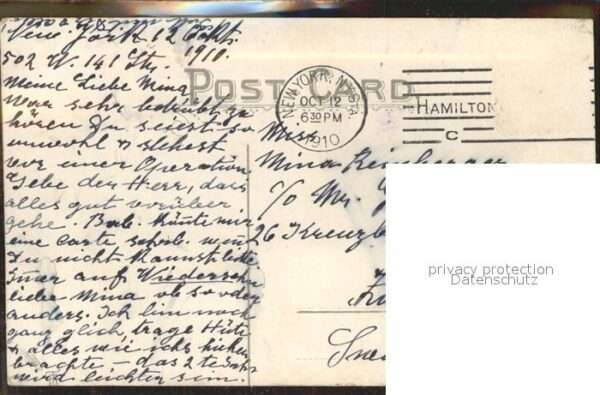 New York 12 Octbr.
1910.
502 W. 141 Str.
Meine Liebe Mina
War sehr betrübt zu
hören Du seiest so
unwohl & stehest
vor einer Operation
Gebe der Herr, dass
alles gut vorüber
gehe. Bab. könnte mir
eine carte schrb. wenn
Du nicht kannst bitte
auf Wiedersehn
liebe Mina ob so oder
anders. Ich bin noch
ganz glich, trage Hüte
& alles wie ichs
brachte – das 2te Jahr
wird leichter sein.
POST CARD
NEW YORK, N.Y. STA.
OCT 12
6 30 PM
1910
HAMILTON
C
Miss
Mina
c/o Mr.
26
privacy protection
Datenschutz